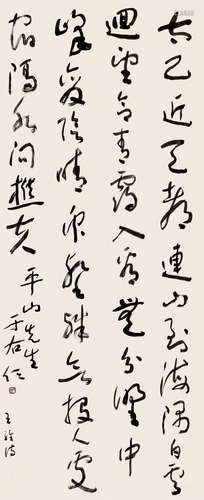 太乙近天都連山到海隅白雲
迴望合青靄入看無分野中
峰變陰晴眾壑殊欲投人處
宿隔水問樵夫
平山先生
于右任
王維詩